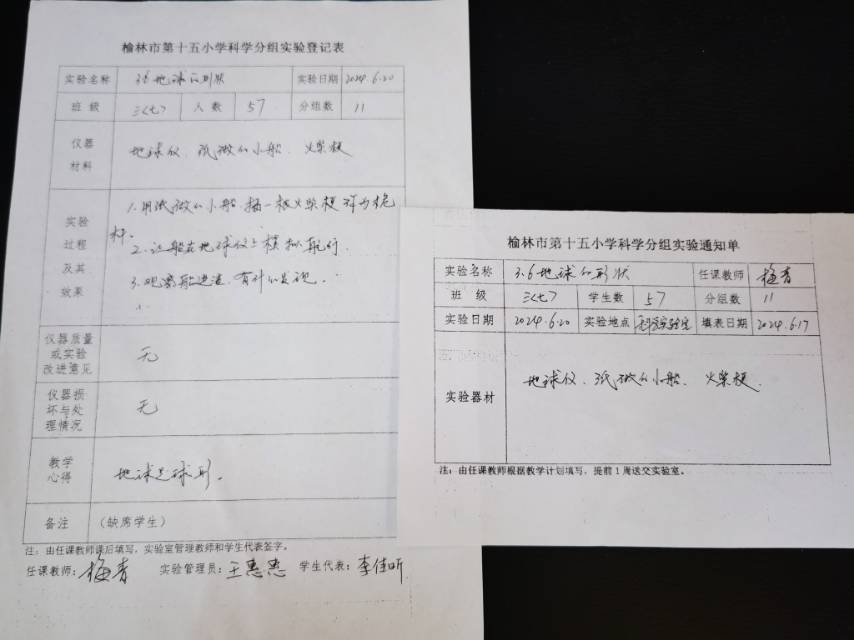 榆林市第十五小学科学分组实验登记表
实验名称 3.6地球的形状 实验日期 2024.6.20
班级 三(七) 人数 57 分组数 11
仪器材料 地球仪、纸做的小船、火柴梗
实验过程及其效果
1.用纸做的小船,插一根火柴梗作为桅
杆.
2.让船在地球仪上模拟航行.
3.观察船进港,有什么发现.
仪器质量或实验改进意见 无
仪器损坏与处理情况 无
教学心得 地球是球形.
备注 (缺席学生)
注:由任课教师课后填写,实验室管理教师和学生代表签字。
任课教师:梅青 实验管理员:王惠惠 学生代表:李佳昕
榆林市第十五小学科学分组实验通知单
实验名称 3.6地球的形状 任课教师 梅青
班级 三(七) 学生数 57 分组数 11
实验日期 2024.6.20 实验地点 科学实验室 填表日期 2024.6.17
实验器材 地球仪、纸做的小船、火柴梗.
注:由任课教师根据教学计划填写,提前1周送交实验室。